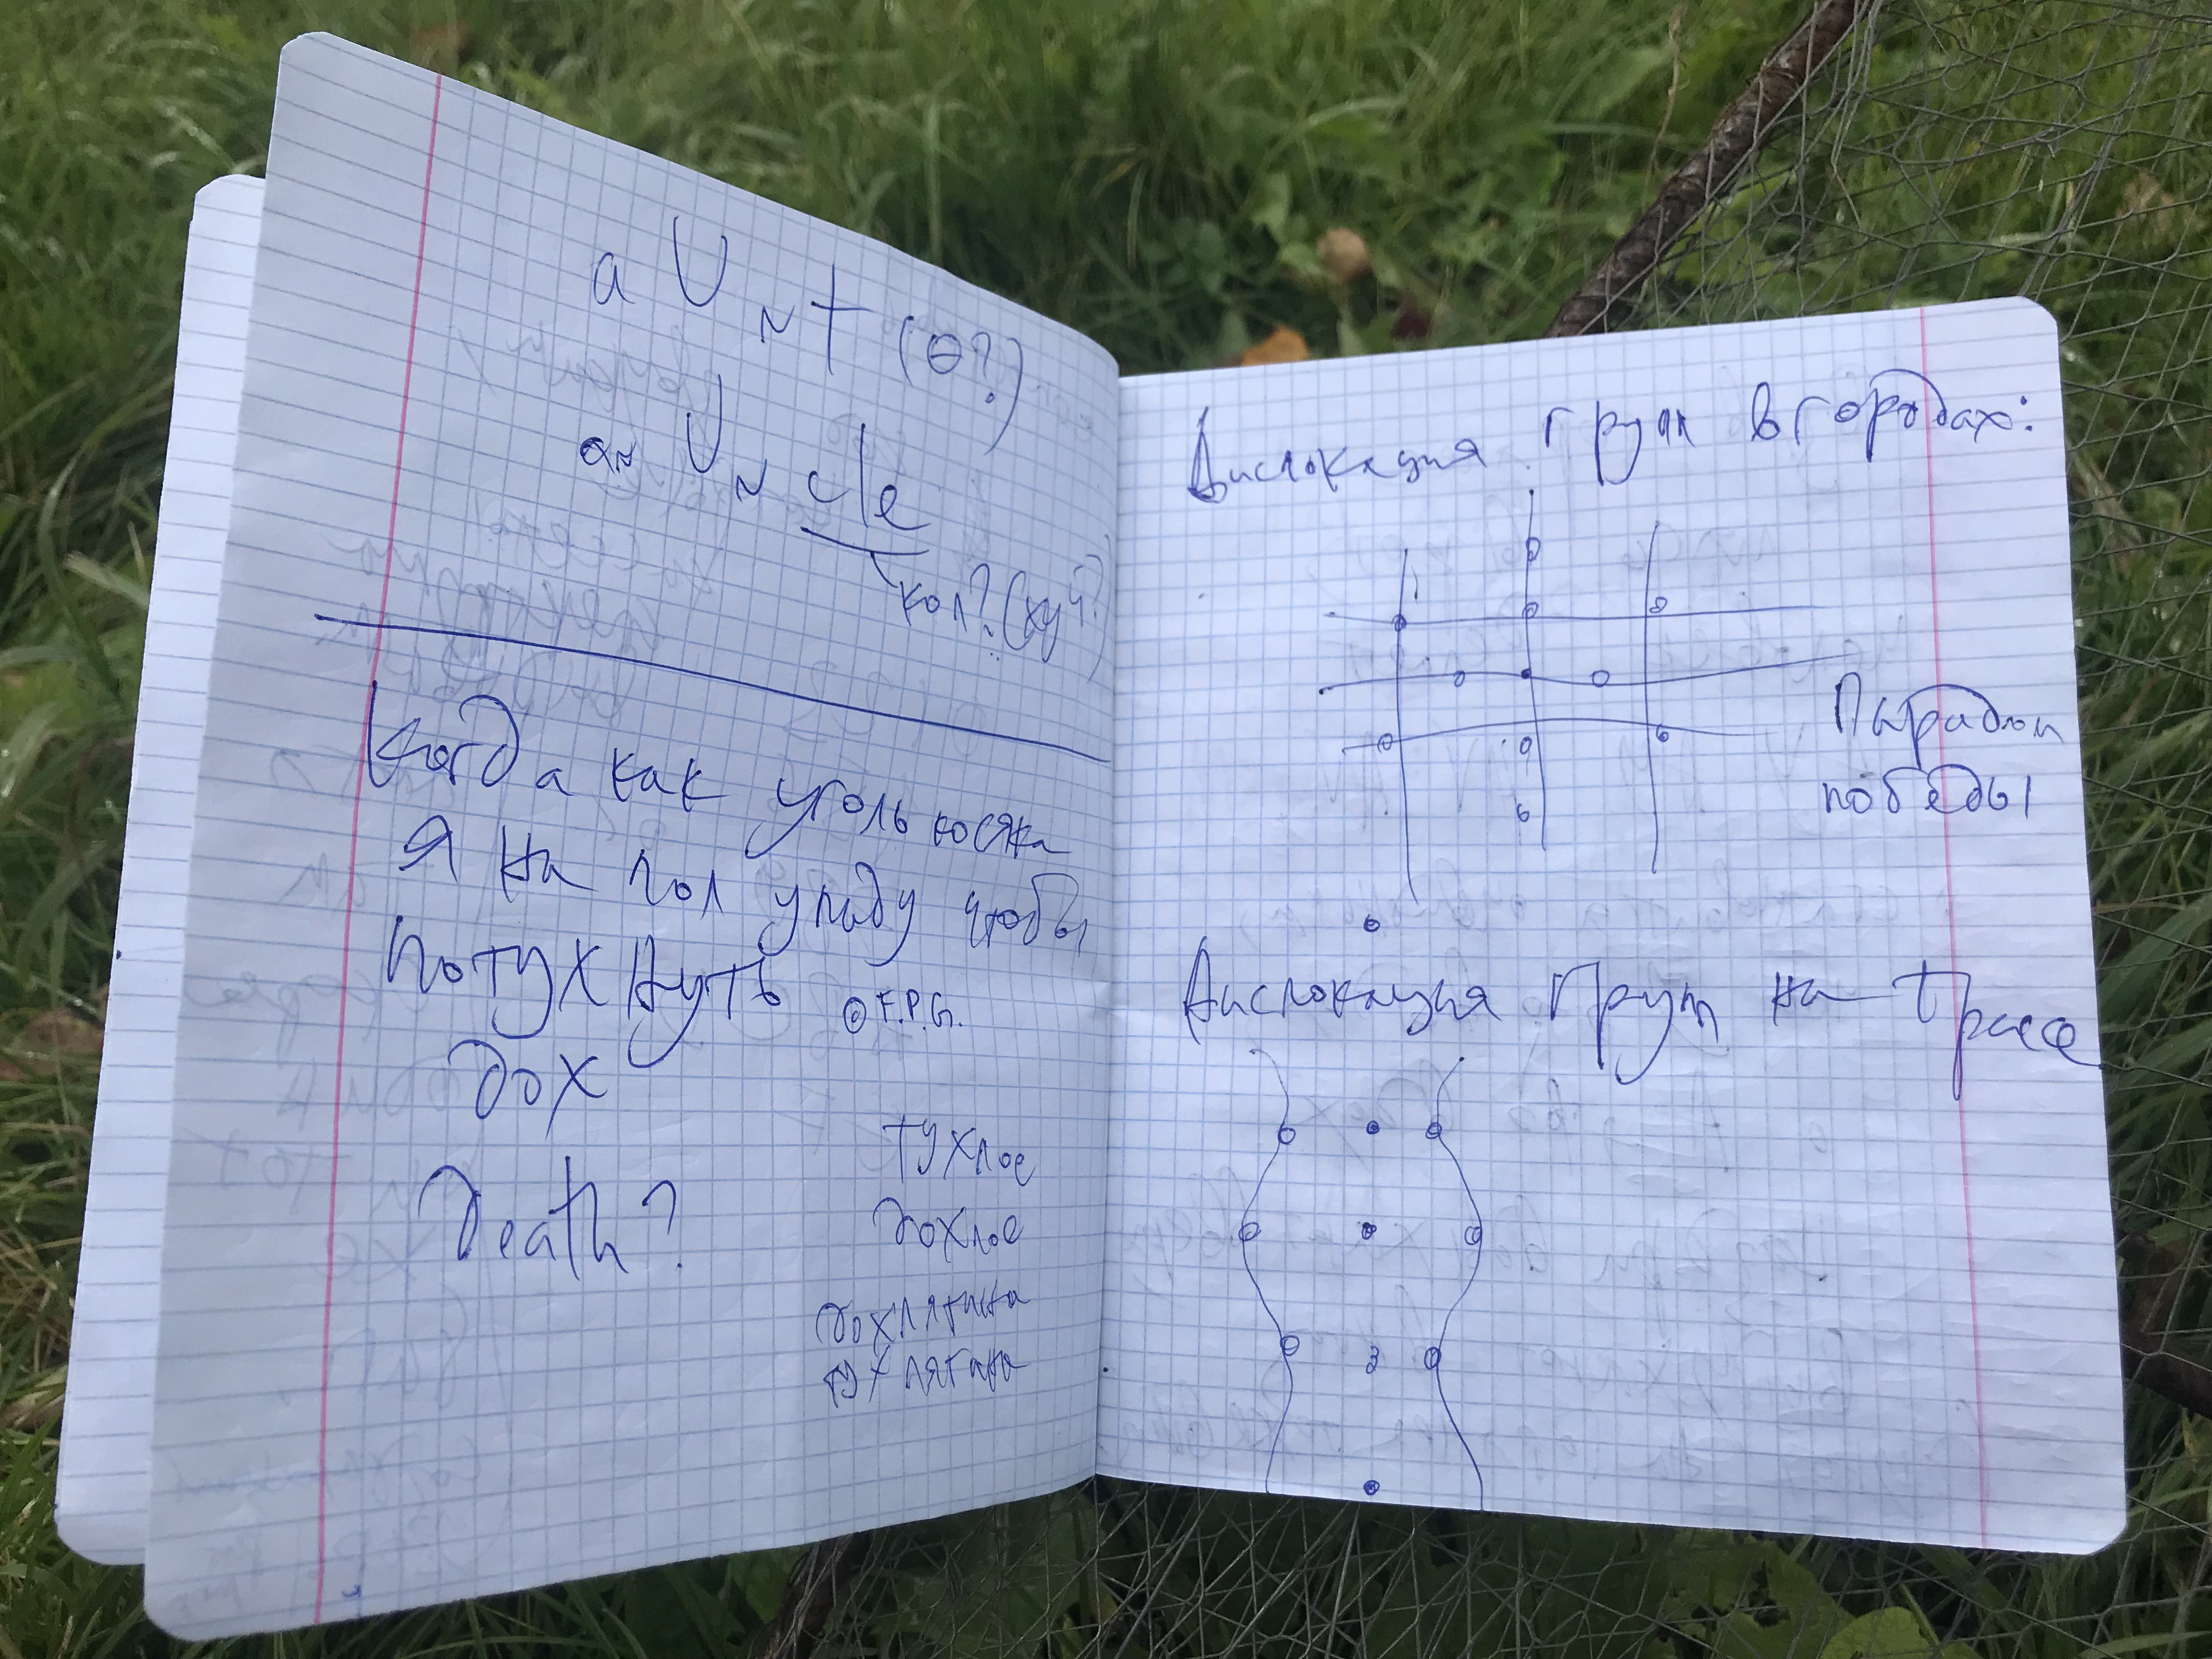 a UNt (θ?)
an UNcle
кол? (хуй?)
Когда как уголь косяка
Я на пол упаду чтобы
потухнуть © F.P.G.
дох
Death?
тухлое
дохлое
дохлятина
тухлятина
Дислокация групп в городах:
победы
Дислокация Групп на трассе